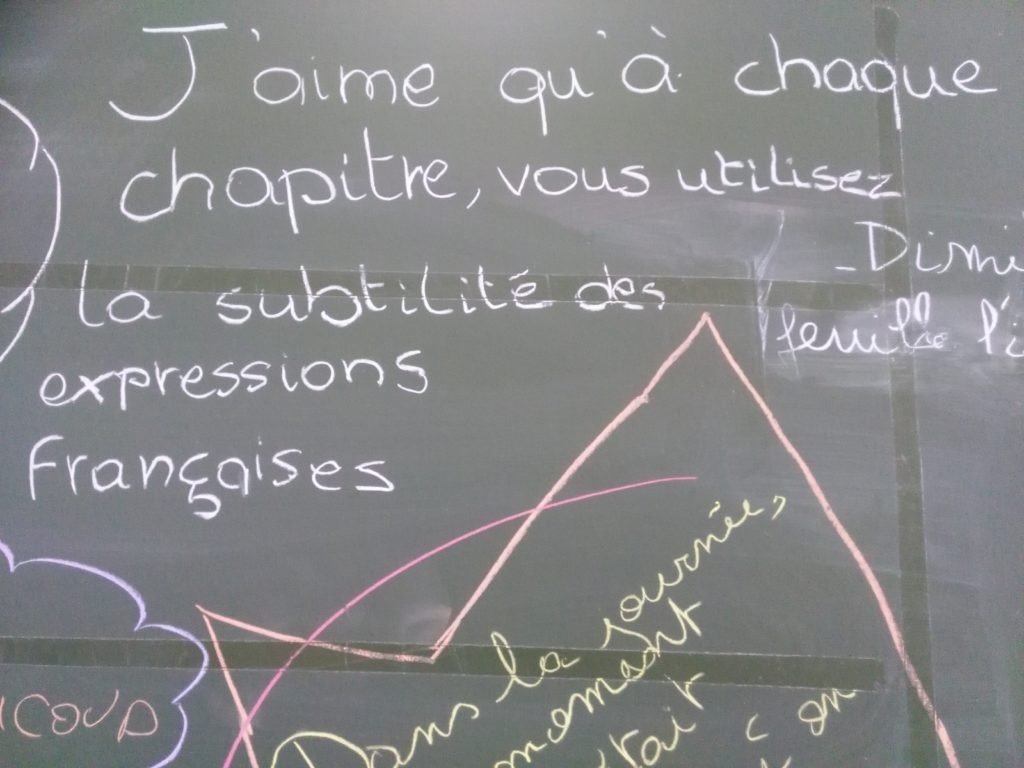 J'aime qu'à chaque
chapitre, vous utilisez
la subtilité des
expressions
françaises
- Dimi
feuille l'i
Dans la journée,